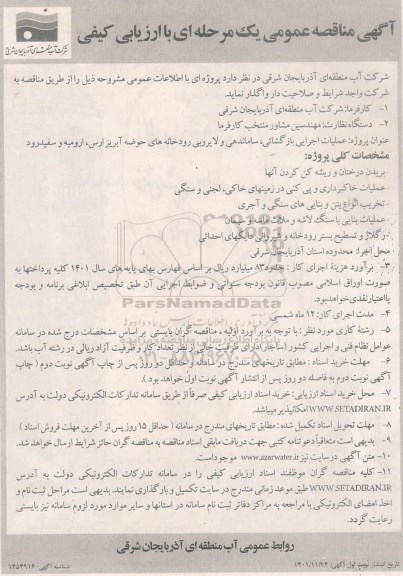 آگهی مناقصه عمومی یک مرحله ای با ارزیابی کیفی
شرکت آب منطقه ای آذربایجان شرقی
شرکت آب منطقه‌ای آذربایجان شرقی در نظر دارد پروژه ای با اطلاعات عمومی مشروحه ذیل را از طریق مناقصه به
شرکت واجد شرایط و صلاحیت دار واگذار نماید.
۱- کارفرما: شرکت آب منطقه‌ای آذربایجان شرقی
۲- دستگاه نظارت: مهندسین مشاور منتخب کارفرما
عنوان پروژه: عملیات اجرایی بازگشائی، ساماندهی و لایروبی رودخانه های حوضه آبریز ارس، ارومیه و سفیدرود
مشخصات کلی پروژه:
-بریدن درختان و ریشه کن کردن آنها
-عملیات خاکبرداری و پی کنی در زمینهای خاکی، لجنی و سنگی
-تخریب انواع بتن و بنایی های سنگی و آجری
-عملیات بنایی با سنگ لاشه و ملات ماسه و سیمان
-رگلاژ و تسطیح بستر رودخانه و شیروانی دایکهای احداثی
محل اجرا: محدوده استان آذربایجان شرقی
۳- برآورد هزینه اجرای کار: حدود ۸۳ میلیارد ریال بر اساس فهارس بهای پایه های سال ۱۴۰۱ کلیه پرداختها به
صورت اوراق اسلامی مصوب قانون بودجه سنواتی و ضوابط اجرایی آن طبق تخصیص ابلاغی برنامه و بودجه
یا اعتبار نقدی خواهد بود.
ParsNamadData
۴- مدت اجرای کار: ۱۲ ماه شمسی
۵- رشته کاری مورد نظر: با توجه به برآورد اولیه، مناقصه گران بایستی بر اساس مشخصات درج شده در سامانه
عوامل نظام فنی و اجرایی کشور (ساجار) دارای ظرفیت خالی از نظر تعداد کار و ظرفیت آزاد ریالی در رشته آب باشد.
۶- مهلت خرید اسناد: مطابق تاریخهای مندرج در سامانه و حداقل دو روز پس از چاپ آگهی نوبت دوم (چاپ
آگهی نوبت دوم به فاصله دو روز پس از انتشار آگهی نوبت اول خواهد بود).
۷- محل خرید اسناد ارزیابی: خرید اسناد ارزیابی کیفی صرفاً از طریق سامانه تدارکات الکترونیکی دولت به آدرس
WWW.SETADIRAN.IR امکانپذیر میباشد.
۸- مهلت تحویل اسناد تکمیل شده: مطابق تاریخهای مندرج در سامانه (حداقل ۱۵ روز پس از آخرین مهلت فروش اسناد)
۹- بدیهی است متعاقباً دعوتنامه کتبی جهت دریافت مابقی اسناد مناقصه به مناقصه گران حائز شرایط ارسال خواهد شد.
۱۰- متن آگهی در سایت نیز www.azarwater.ir موجود است.
۱۱- کلیه مناقصه گران موظفند اسناد ارزیابی کیفی را در سامانه تدارکات الکترونیکی دولت به آدرس
WWW.SETADIRAN.IR طبق موعد زمانی مندرج در سایت تکمیل و بارگذاری نمایند. بدیهی است مراحل ثبت نام و
اخذ امضای الکترونیکی با مراجعه به مراکز دفاتر ثبت نام سامانه در استانها و سایر موارد مورد لزوم سامانه نیز بایستی
رعایت گردد.
روابط عمومی آب منطقه ای آذربایجان شرقی
تاریخ انتشار نوبت اول آگهی: ۱۴۰۱/۱۱/۲۲
شناسه آگهی: ۱۴۵۴۹۱۶